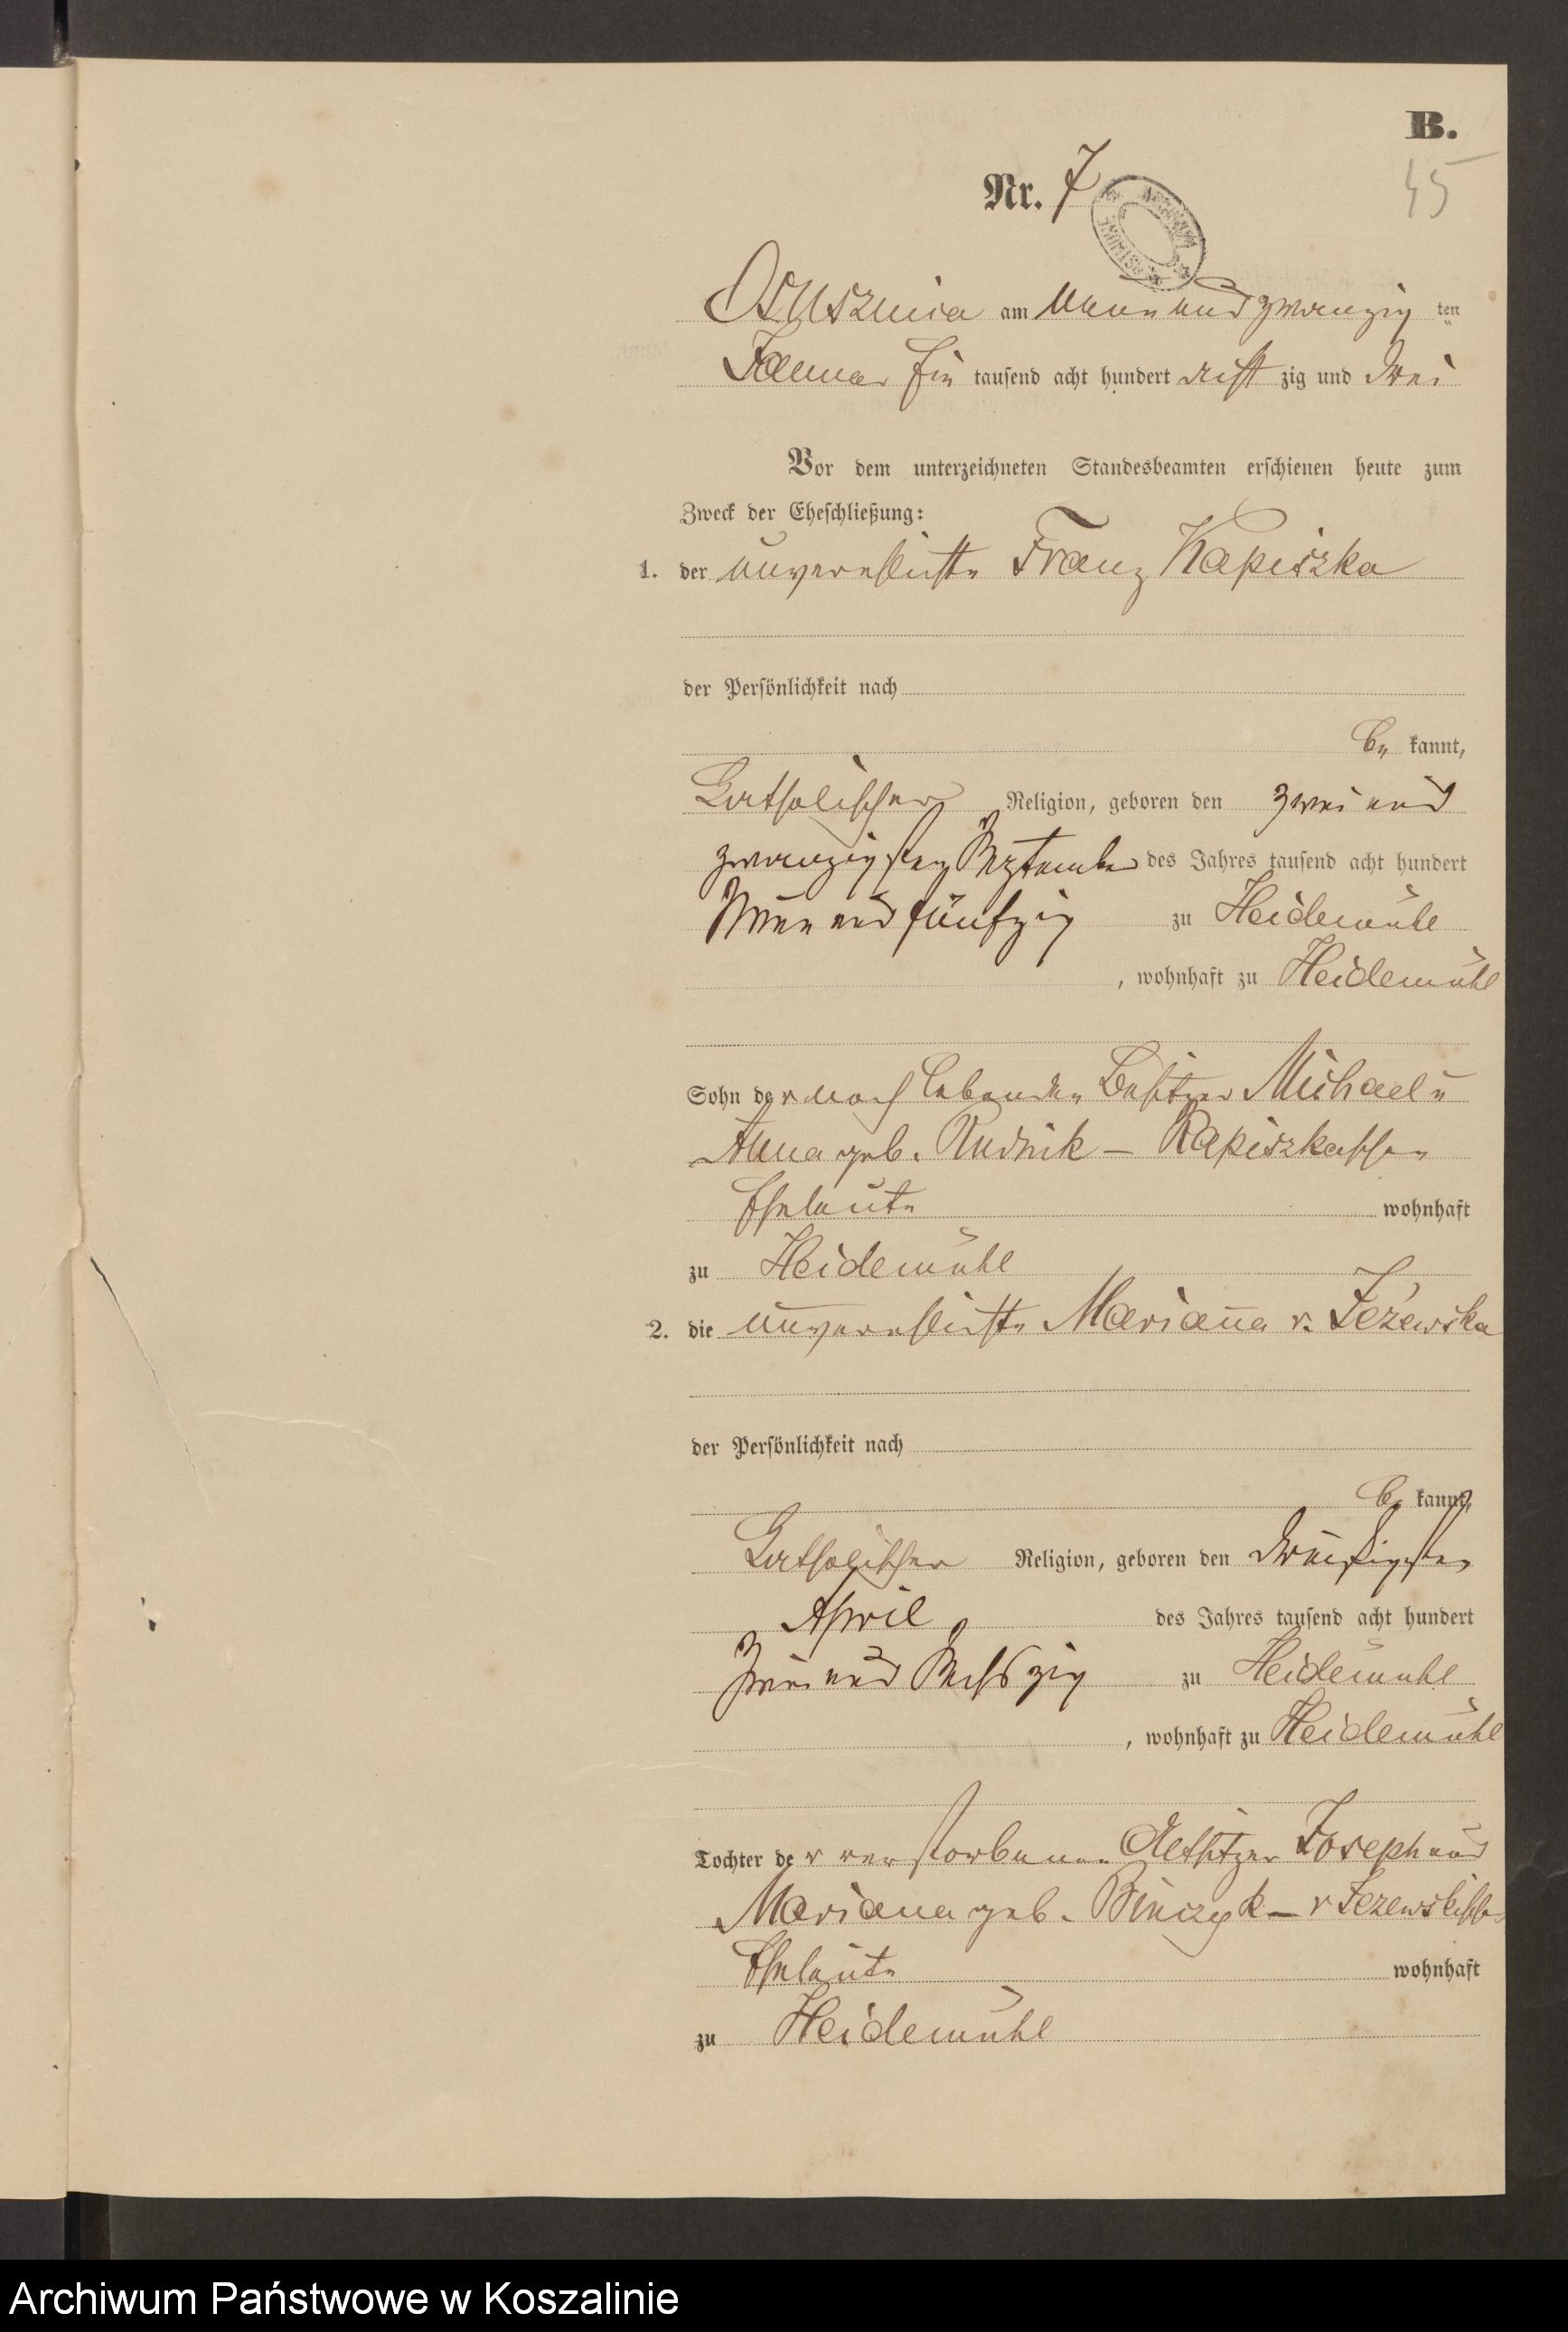 B.
Nr. 7
45
Osusznica am neun und zwanzig ten
Januar Ein tausend acht hundert acht zig und drei
Vor dem unterzeichneten Standesbeamten erschienen heute zum
Zweck der Eheschließung:
1. der unverehlichte Franz Kapiszka
der Persönlichkeit nach
be kannt,
katholischer Religion, geboren den zwei und
zwanzigsten September des Jahres tausend acht hundert
Neun und fünfzig zu Heidemühl
, wohnhaft zu Heidemühl
Sohn der noch lebenden Besitzer Michael u
Anna geb. Rudnik – Kapiszkaschen
Eheleute wohnhaft
zu Heidemühl
2. die unverehlichte Marianna v. Jeżewska
der Persönlichkeit nach
be kannt,
katholischer Religion, geboren den dreißigsten
April des Jahres tausend acht hundert
Zwei und Sechszig zu Heidemühl
, wohnhaft zu Heidemühl
Tochter der verstorbenen Altsitzer Joseph und
Mariana geb. Binczyk – v Jezewskischen
Eheleute wohnhaft
zu Heidemühl
Archiwum Państwowe w Koszalinie